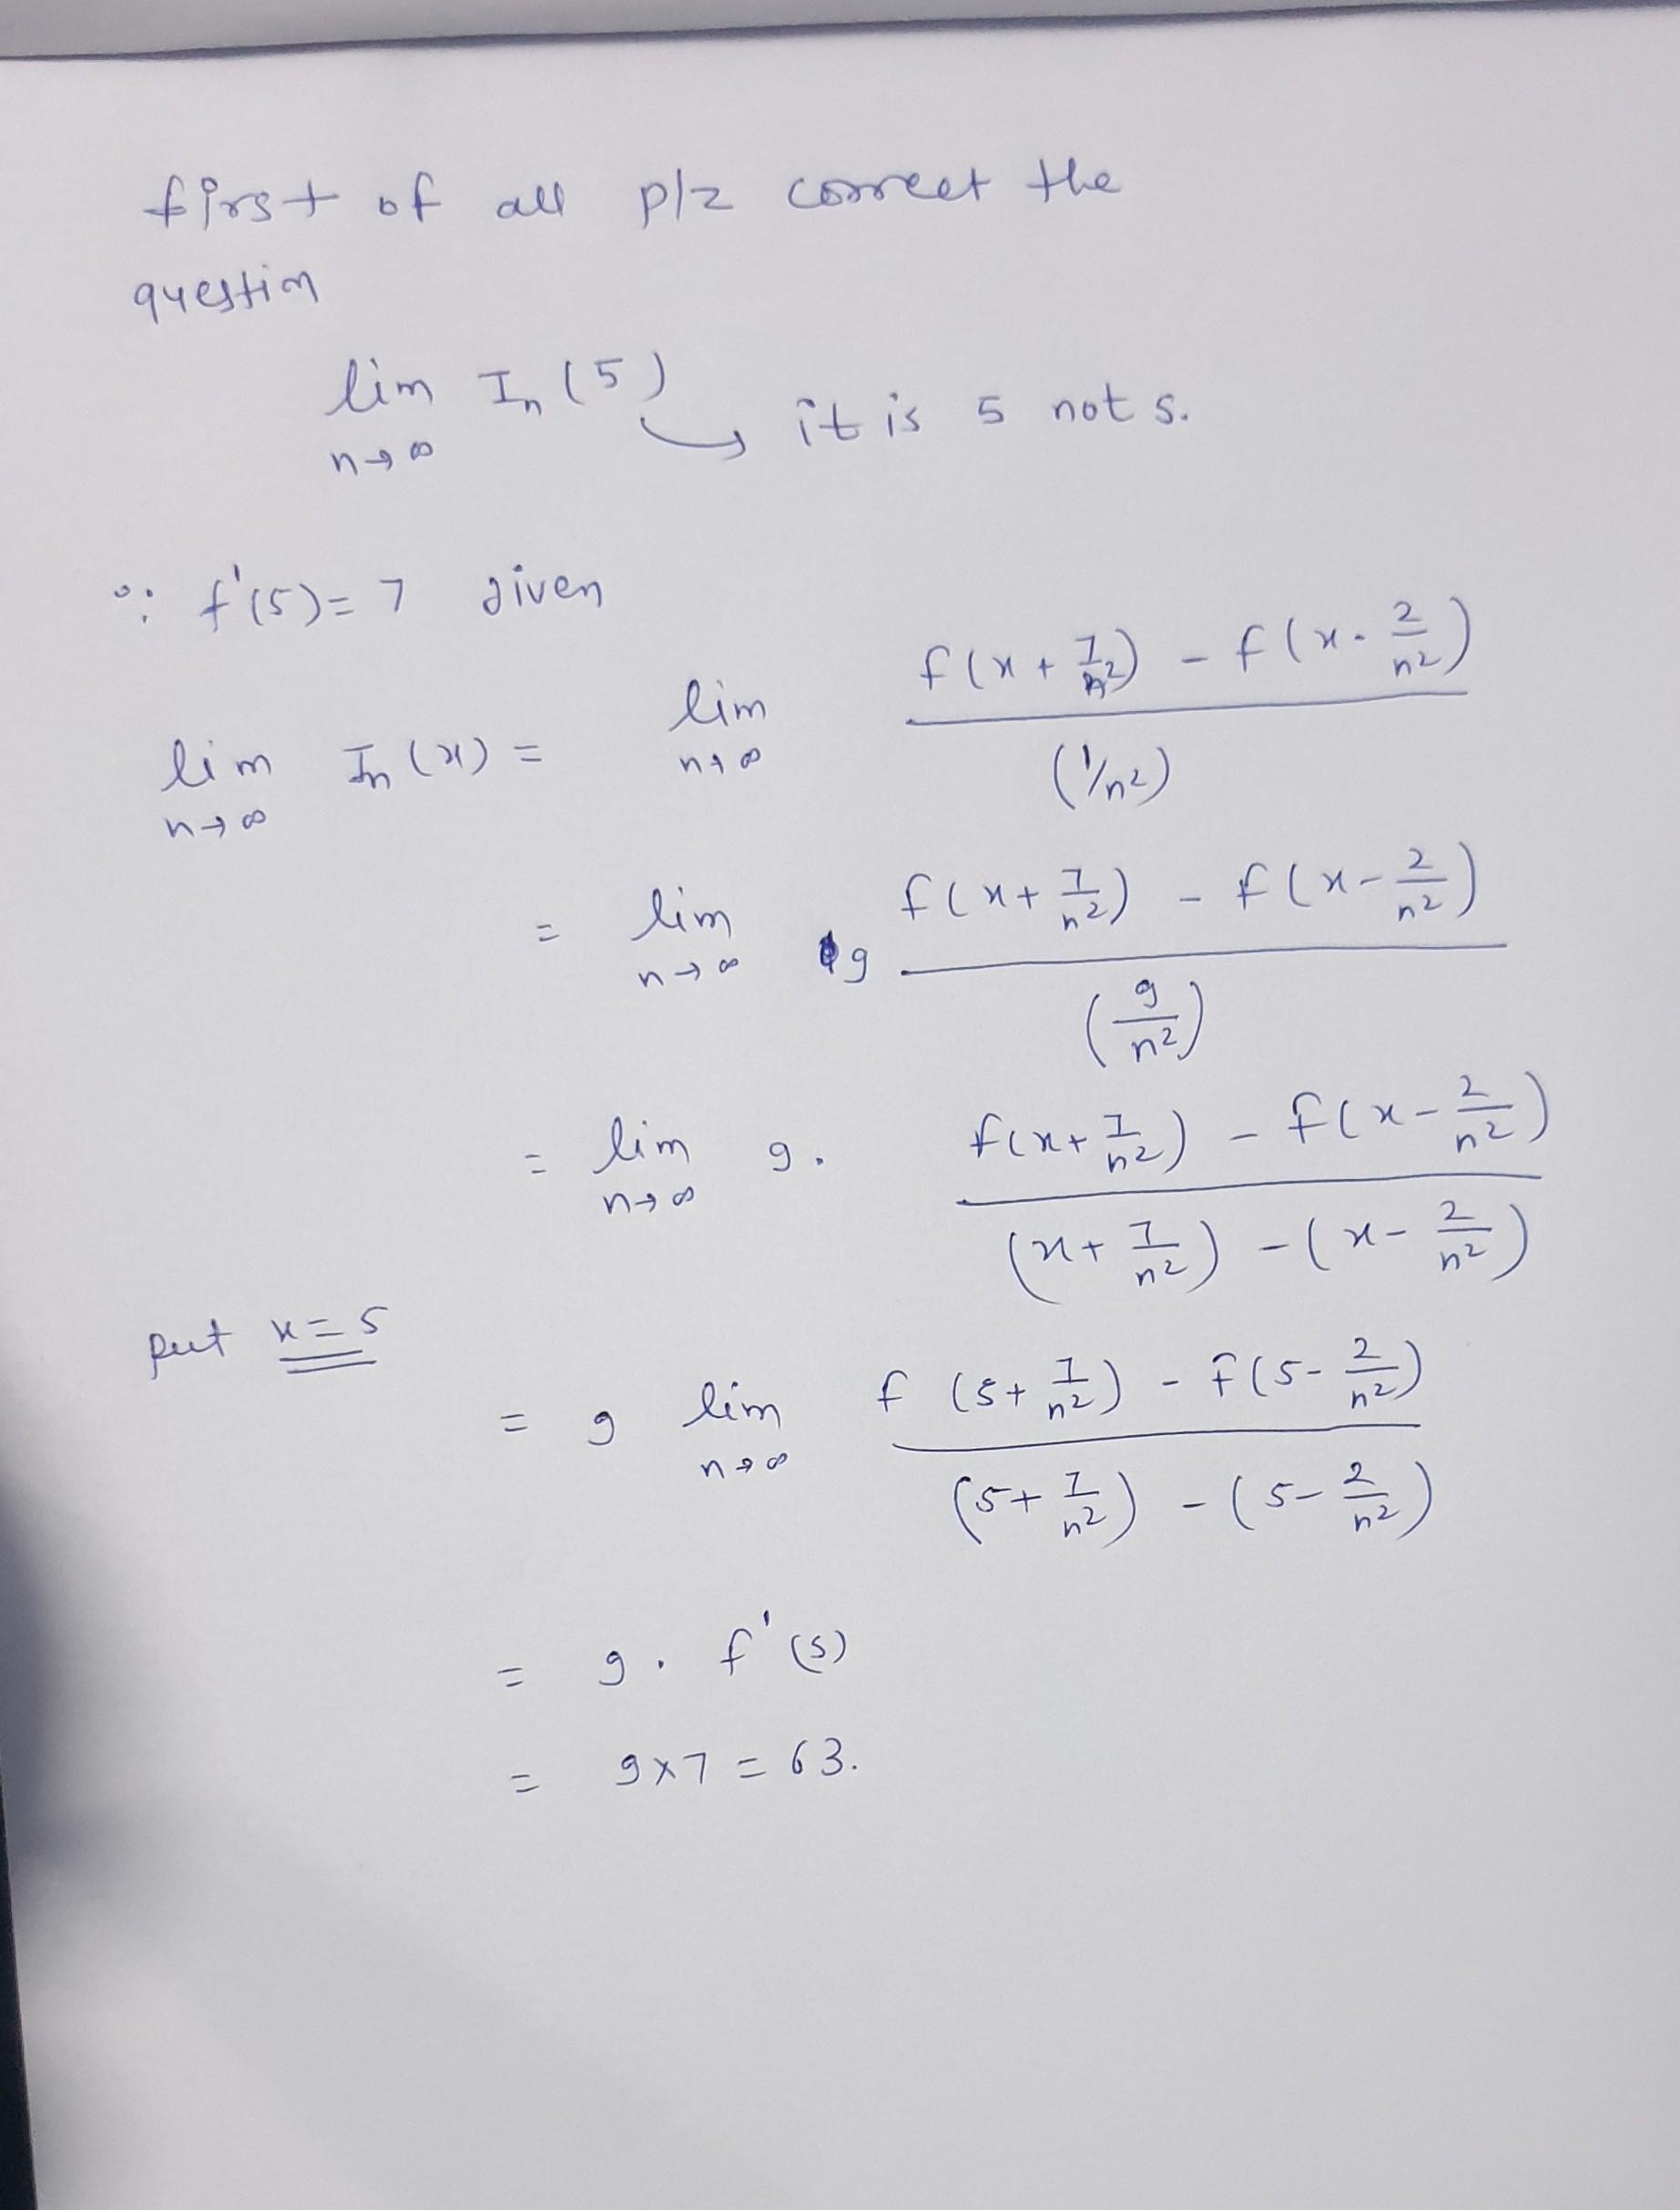 first of all plz correct the
questin
lim In (5)
n→∞
it is 5 not s.
∵ f'(5)=7 given
lim In (x) = lim f(x+7/n²) - f(x-2/n²) / (1/n²)
n→∞ n→∞
= lim 9 f(x+7/n²) - f(x-2/n²) / (9/n²)
n→∞
= lim 9. f(x+7/n²) - f(x-2/n²) / (x+7/n²) - (x-2/n²)
n→∞
put x=5
= 9 lim f (5+7/n²) - f(5-2/n²) / (5+7/n²) - (5-2/n²)
n→∞
= 9. f'(5)
= 9x7 = 63.